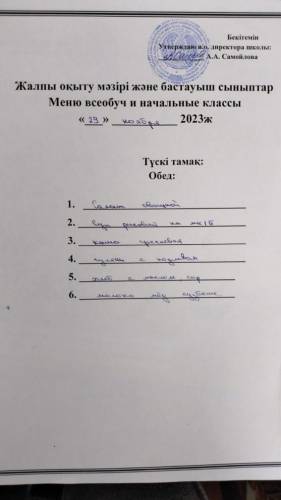 Бекітемін
Утверждаю: и.о. директора школы:
А.А. Самойлова
Жалпы оқыту мәзірі және бастауыш сыныптар
Меню всеобуч и начальные классы
« 29 » ноября 2023ж
Түскі тамақ:
Обед:
1. Салат овощной
2. Суп рисовый на мк/б
3. каша гречневая
4. гуляш с
5. хлеб с маслом, сыр
6. молоко